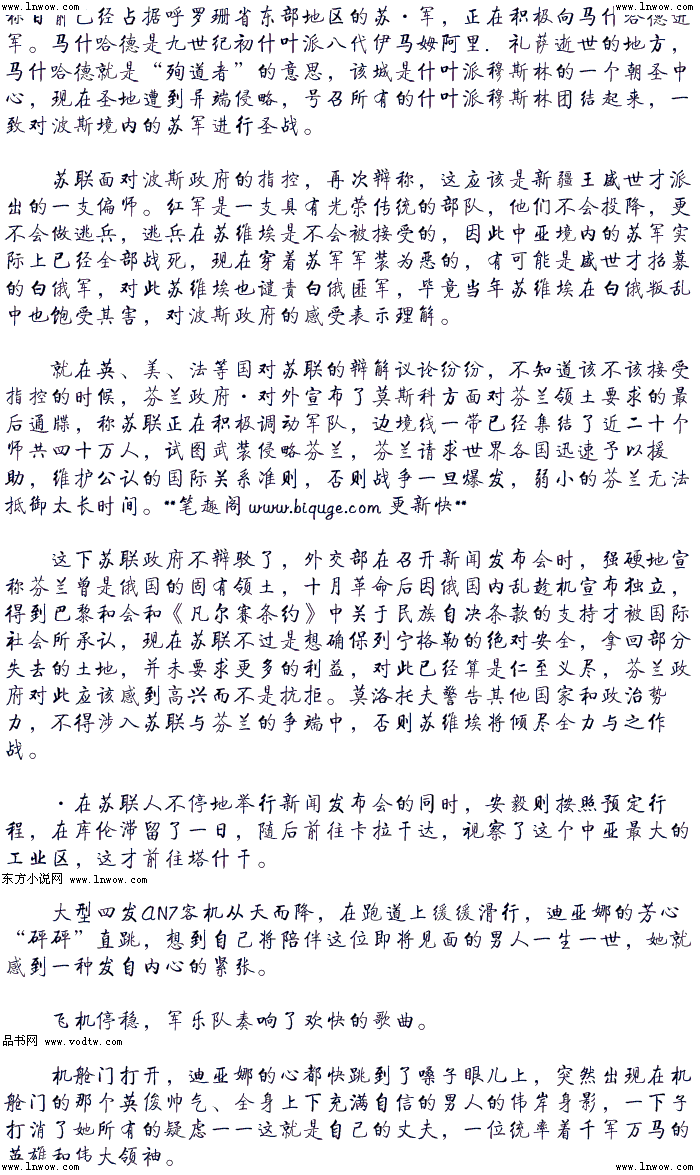 www.lnwow.com www.lnwow.com
称目前已经占据呼罗珊省东部地区的苏·军，正在积极向马什哈德进
军。马什哈德是九世纪初什叶派八代伊马姆阿里．礼萨逝世的地方，
马什哈德就是“殉道者”的意思，该城是什叶派穆斯林的一个朝圣中
心，现在圣地遭到异端侵略，号召所有的什叶派穆斯林团结起来，一
致对波斯境内的苏军进行圣战。
苏联面对波斯政府的指控，再次辩称，这应该是新疆王盛世才派
出的一支偏师。红军是一支具有光荣传统的部队，他们不会投降，更
不会做逃兵，逃兵在苏维埃是不会被接受的，因此中亚境内的苏军实
际上已经全部战死，现在穿着苏军军装为恶的，有可能是盛世才招募
的白俄军，对此苏维埃也谴责白俄匪军，毕竟当年苏维埃在白俄叛乱
中也饱受其害，对波斯政府的感受表示理解。
就在英、美、法等国对苏联的辩解议论纷纷，不知道该不该接受
指控的时候，芬兰政府·对外宣布了莫斯科方面对芬兰领土要求的最
后通牒，称苏联正在积极调动军队，边境线一带已经集结了近二十个
师共四十万人，试图武装侵略芬兰，芬兰请求世界各国迅速予以援
助，维护公认的国际关系准则，否则战争一旦爆发，弱小的芬兰无法
抵御太长时间。**笔趣阁 www.biquge.com 更新快**
这下苏联政府不辩驳了，外交部在召开新闻发布会时，强硬地宣
称芬兰曾是俄国的固有领土，十月革命后因俄国内乱趁机宣布独立，
得到巴黎和会和《凡尔赛条约》中关于民族自决条款的支持才被国际
社会所承认，现在苏联不过是想确保列宁格勒的绝对安全，拿回部分
失去的土地，并未要求更多的利益，对此已经算是仁至义尽，芬兰政
府对此应该感到高兴而不是抗拒。莫洛托夫警告其他国家和政治势
力，不得涉入苏联与芬兰的争端中，否则苏维埃将倾尽全力与之作
战。
·在苏联人不停地举行新闻发布会的同时，安毅则按照预定行
程，在库伦滞留了一日，随后前往卡拉干达，视察了这个中亚最大的
工业区，这才前往塔什干。
东方小说网 www.lnwow.com
大型四发AN7客机从天而降，在跑道上缓缓滑行，迪亚娜的芳心
“砰砰”直跳，想到自己将陪伴这位即将见面的男人一生一世，她就
感到一种发自内心的紧张。
飞机停稳，军乐队奏响了欢快的歌曲。
品书网 www.vodtw.com
机舱门打开，迪亚娜的心都快跳到了嗓子眼儿上，突然出现在机
舱门的那个英俊帅气、全身上下充满自信的男人的伟岸身影，一下子
打消了她所有的疑虑一一这就是自己的丈夫，一位统率着千军万马的
英雄和伟大领袖。
www.lnwow.com www.lnwow.com